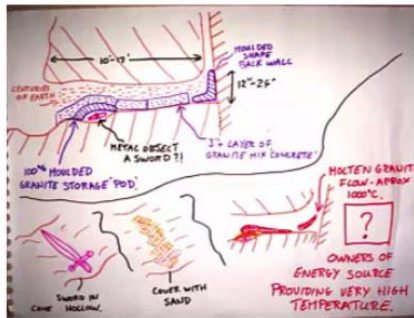 10'-17'
MOULDED
SHAPE
BACK WALL
CENTURIES
OF EARTH
12"-24"
METAL OBJECT
A SWORD?!
3"+ LAYER OF
GRANITE MIX 'CONCRETE'
MOULDED
GRANITE STORAGE 'POD'
MOLTEN GRANITE
FLOW - APROX
1000°C.
?
OWNERS OF
ENERGY SOURCE
PROVIDING VERY HIGH
TEMPERATURE.
SWORD IN
CAVE HOLLOW.
COVER WITH
SAND